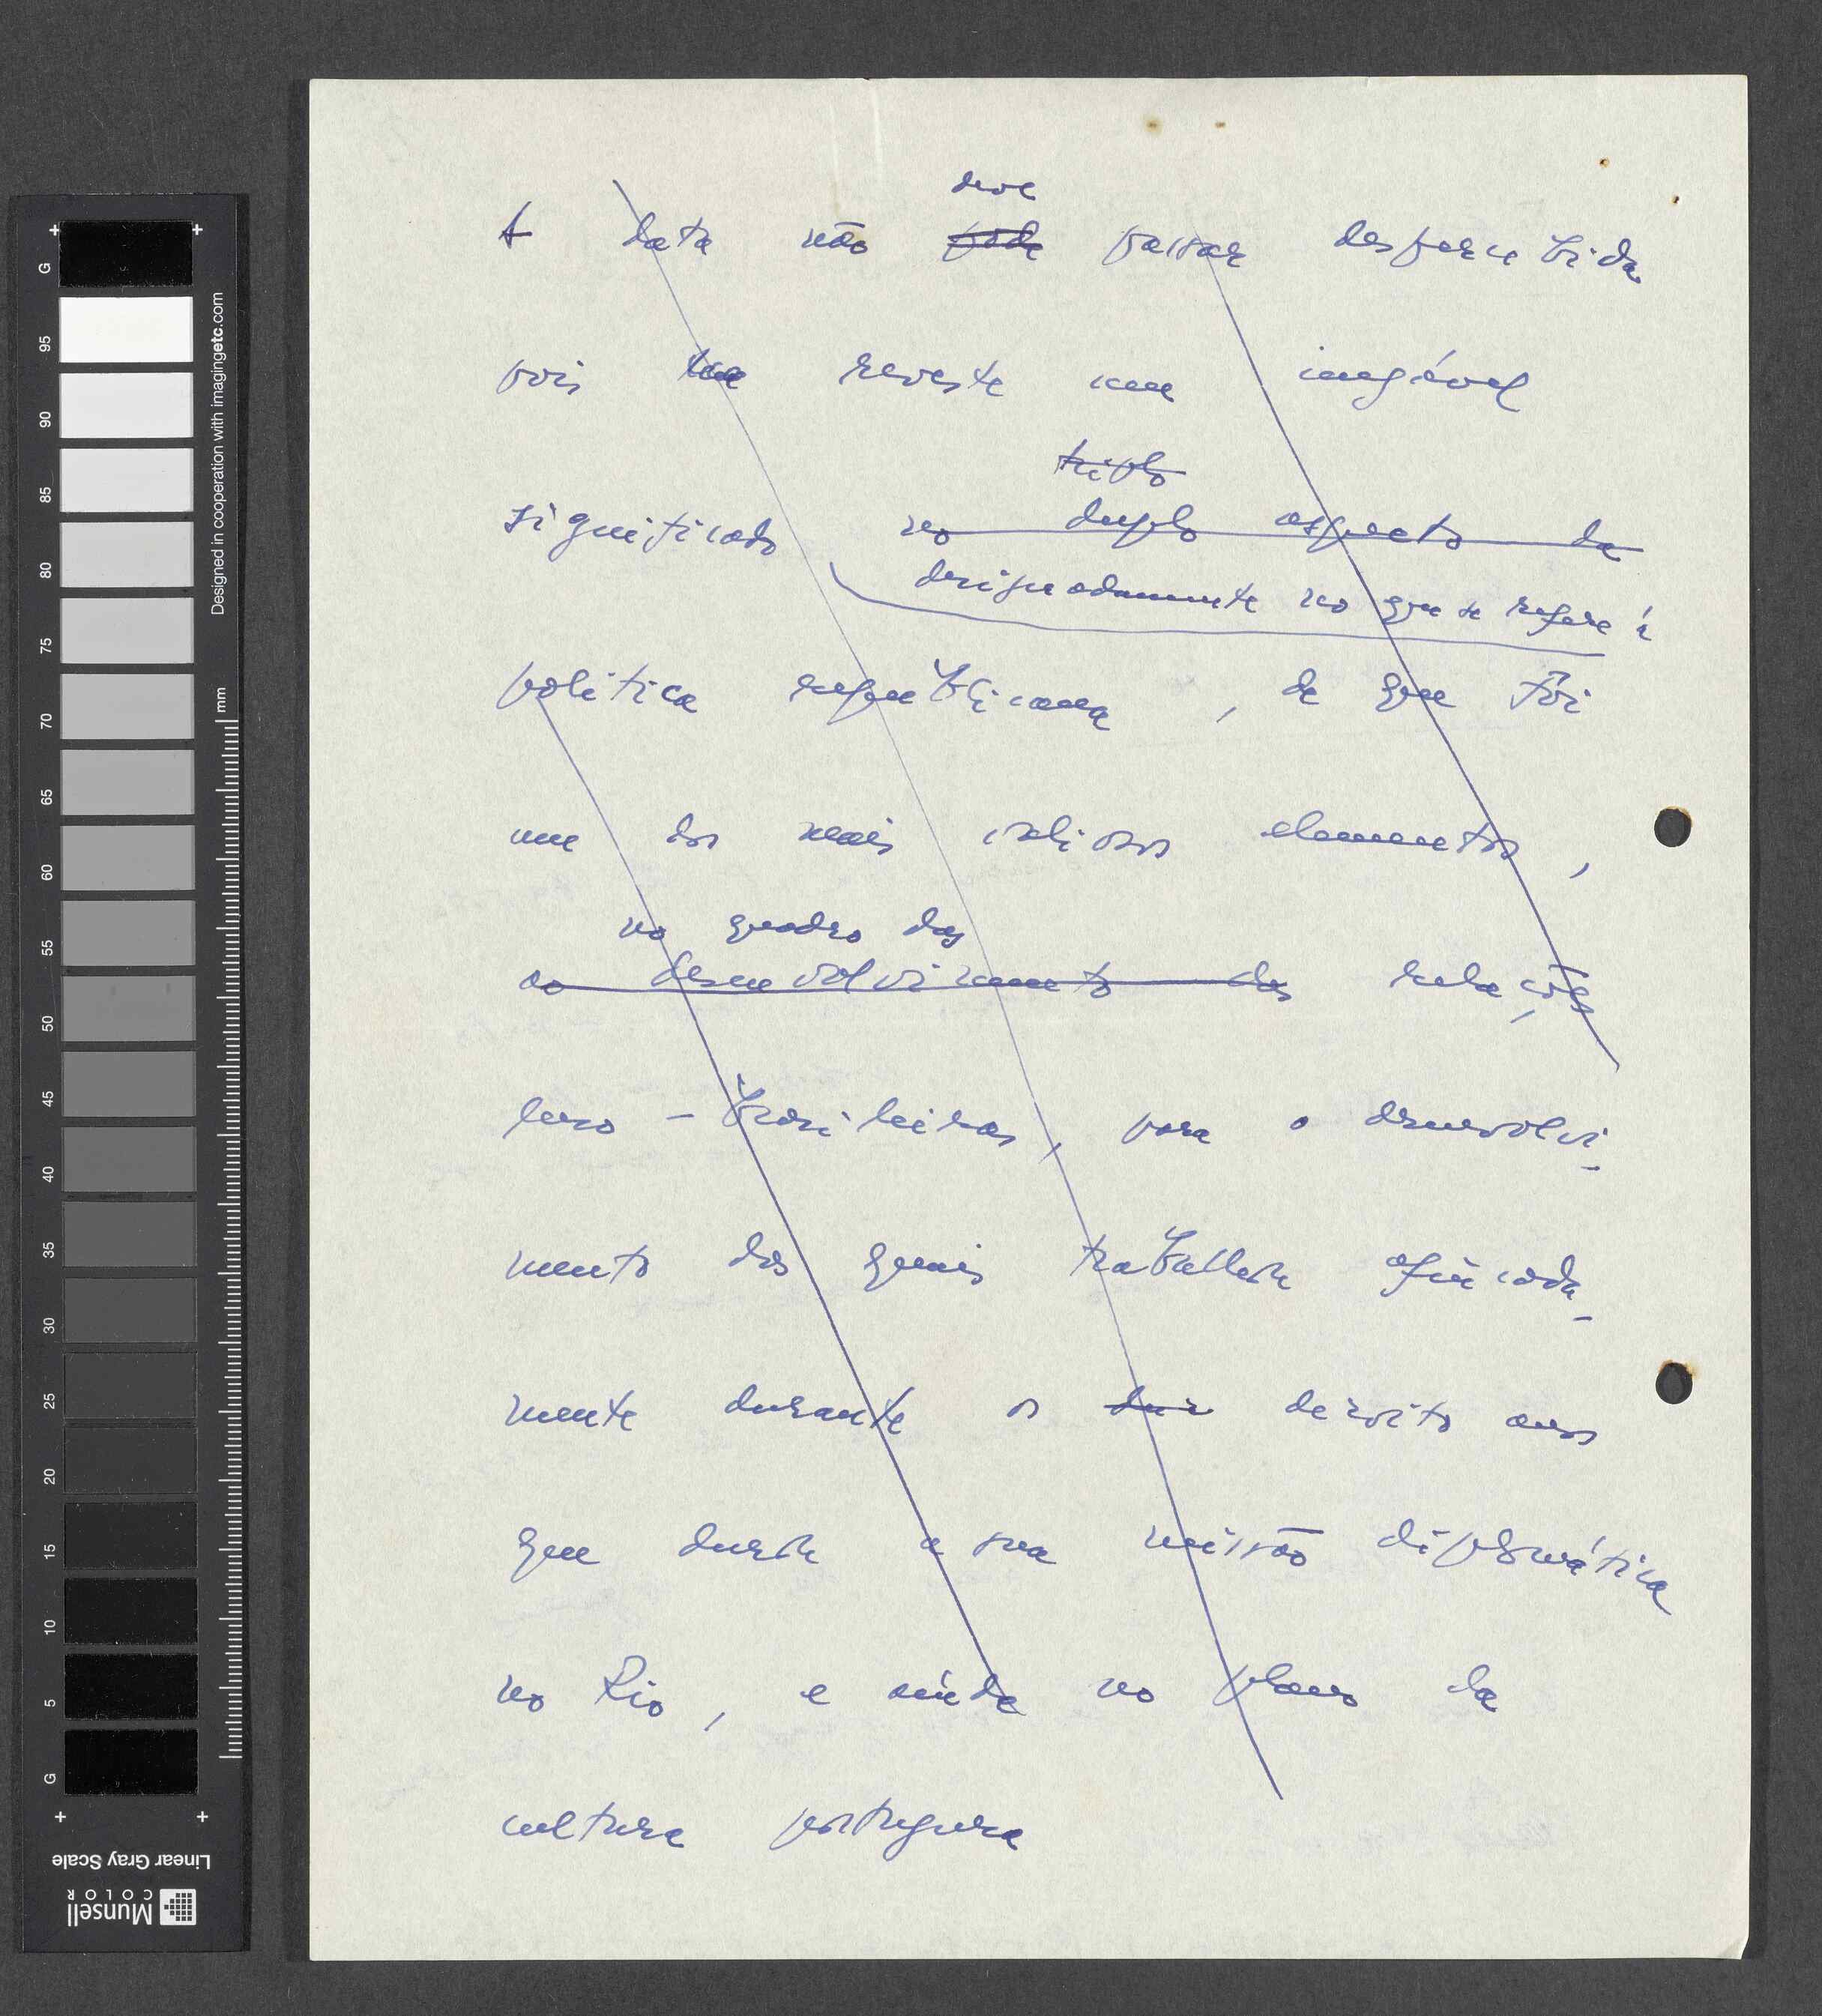 deve
A data não pode passar despercebida
pois reveste um inegável
triplo
significado no duplo aspecto da
designadamente no que se refere à
política republicana, de que foi
um dos mais valiosos elementos,
no quadro das
ao desenvolvimento das relações
luso-brasileiras, para o desenvolvi-
mento das quais trabalhou afincada-
mente durante os dezoito anos
que durou a sua missão diplomática
no Rio, e ainda no plano da
cultura portuguesa
G
95
90
85
80
75
70
65
60
55
50
45
40
35
30
25
20
15
10
5
G
Designed in cooperation with imagingetc.com
mm
Linear Gray Scale
Munsell
COLOR